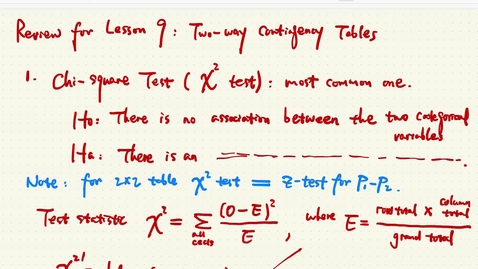 Review for Lesson 9: Two-way Contingency Tables
1. Chi-square Test (χ² test): most common one.
Ho: There is no association between the two categorical variables
Ha: There is an — — — — — — — .
Note: for 2x2 table χ² test = Z-test for P₁-P₂.
Test statistic χ² = ∑ all cells (O-E)²/E, where E = row total x column total / grand total